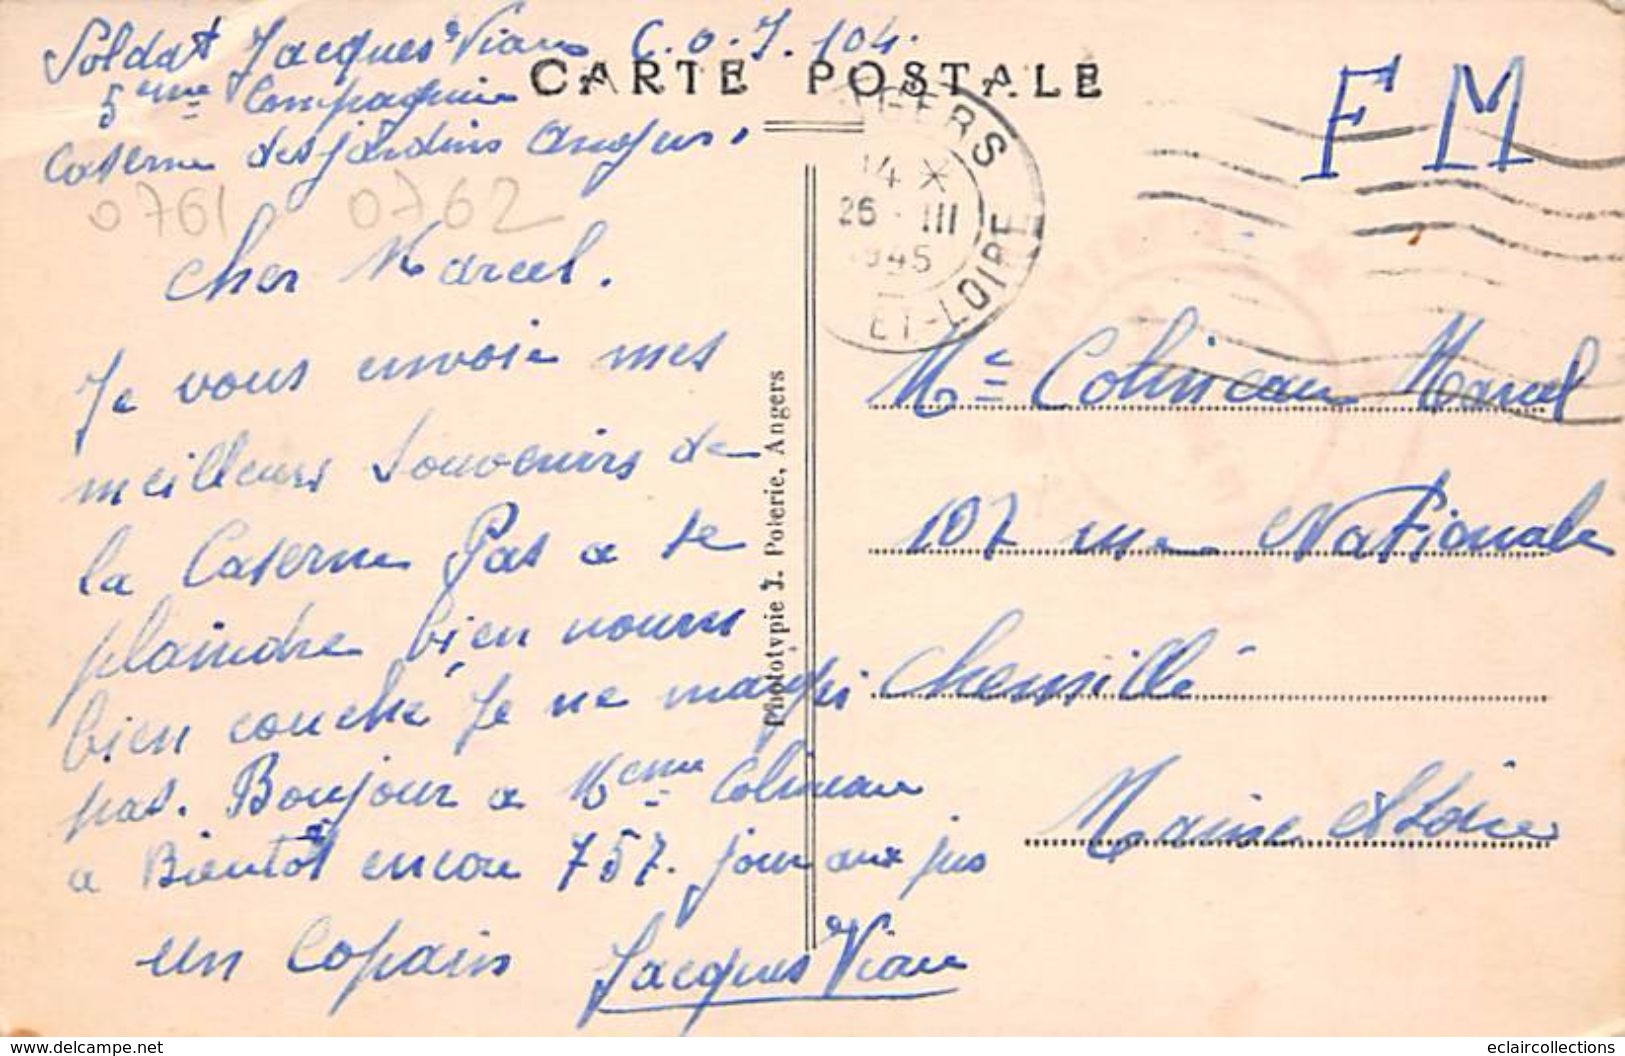 Soldat Jacques Viau C.O.I. 104.
5ème Compagnie
Caserne des jardins Angers.
CARTE POSTALE
FM
0761 0762
GERS
14 *
26 · III
1945
ET-LOIRE
Cher Marcel.
Je vous envoie mes
meilleurs souvenirs de
la Caserne Pas a se
plaindre bien nourri
bien couché Je ne maigri
pas. Bonjour a Meme Colineau
a Bientôt encore 757. jour aux jus
un Copain Jacques Viau
Phototypie J. Poterie, Angers
Mr Colineau Marcel
107 rue Nationale
Chemillé
Maine et Loire
www.delcampe.net
eclaircollections